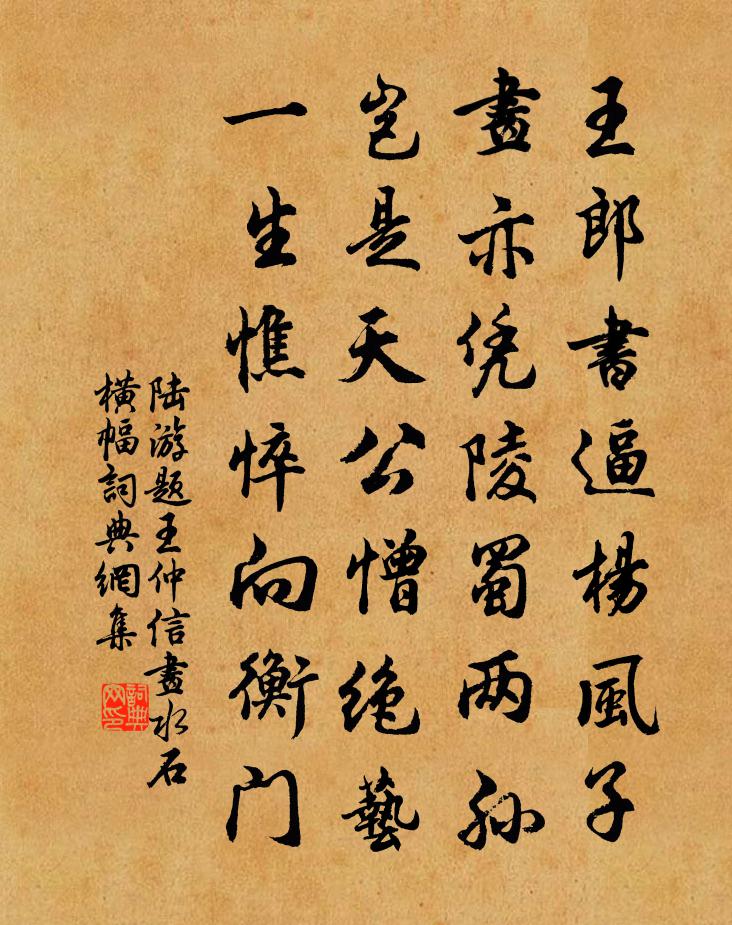 王郎書逼楊風子
畫亦凭陵蜀两孙
岂是天公憎绝藝
一生憔悴向衡门
陆游题王仲信畫水石
橫幅詞典網集
詞典网印